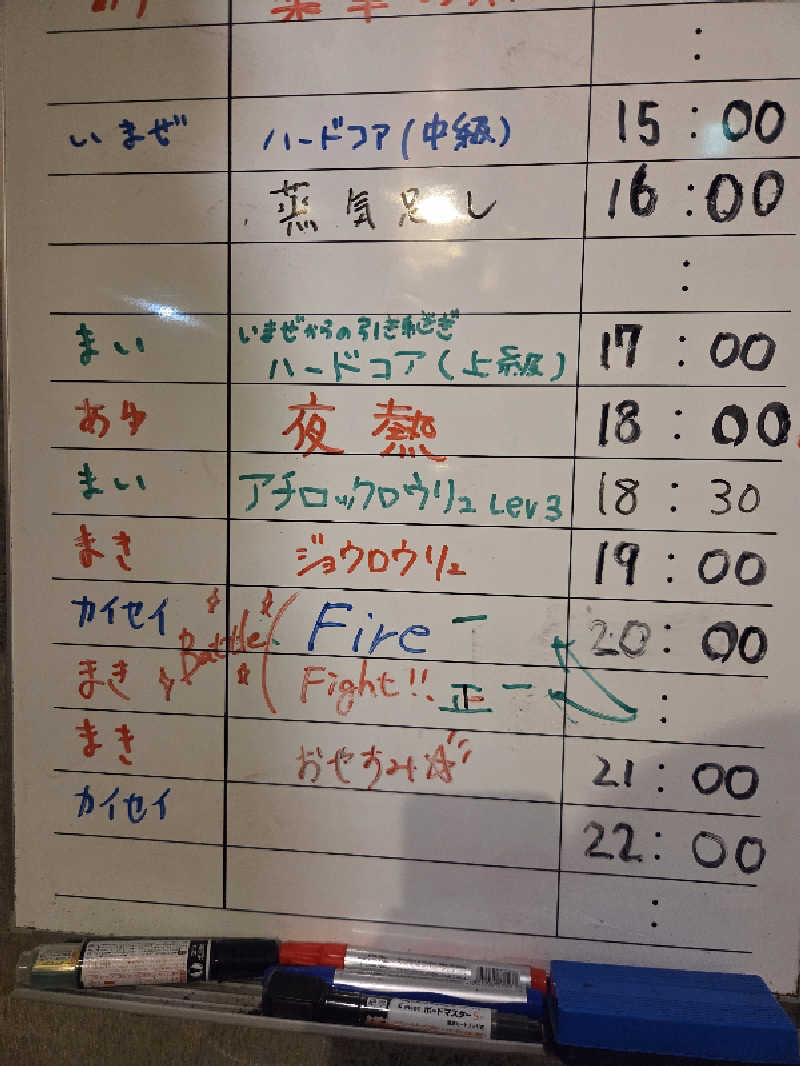 :
いまぜ ハードコア(中級) 15:00
蒸気足し 16:00
:
まい いまぜからの引き継ぎ
ハードコア(上級) 17:00
あゆ 夜熱 18:00
まい アチロックロウリュ Lev3 18:30
まき ジョウロウリュ 19:00
カイセイ ☆ Battle ☆ ( Fire 一 20:00
まき ☆ ☆ Fight!! 正一 :
まき おやすみ☆ 21:00
カイセイ 22:00
:
ボードマスター